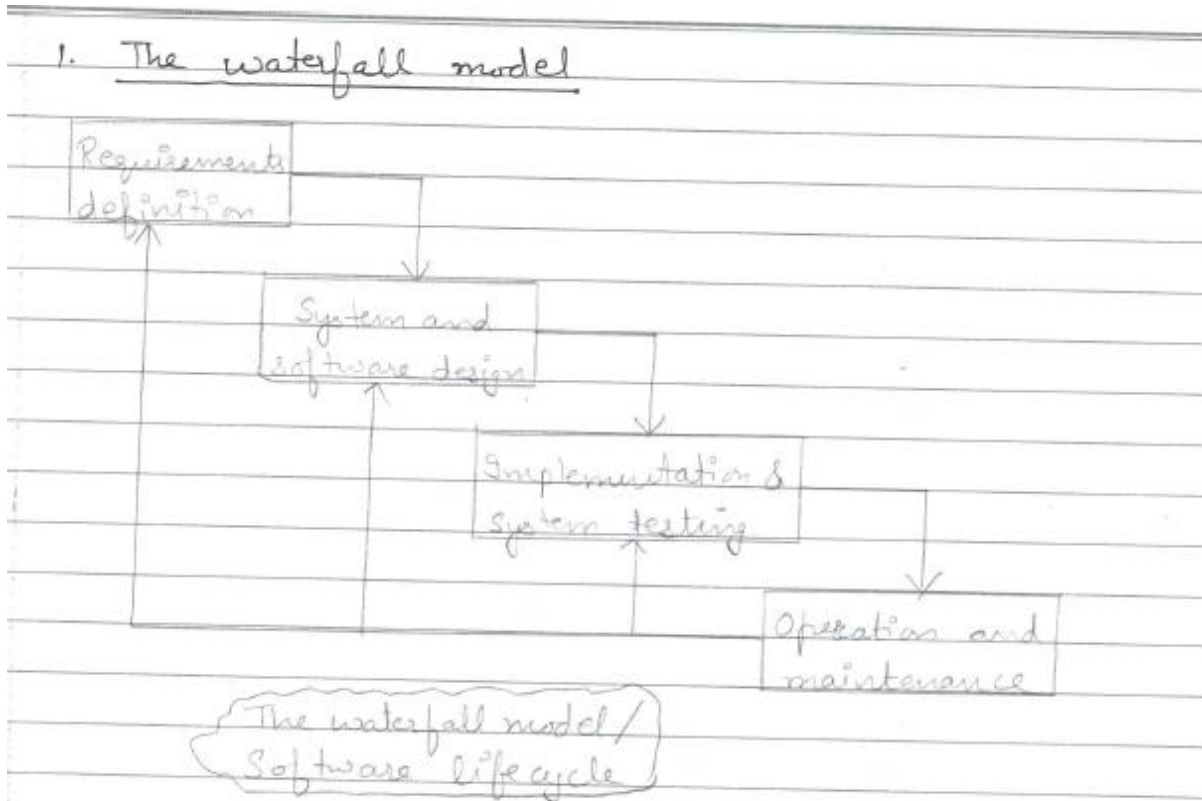 1. The waterfall model
Requirements
definition
System and
software design
Implementation &
system testing
Operation and
maintenance
The waterfall model/
Software lifecycle